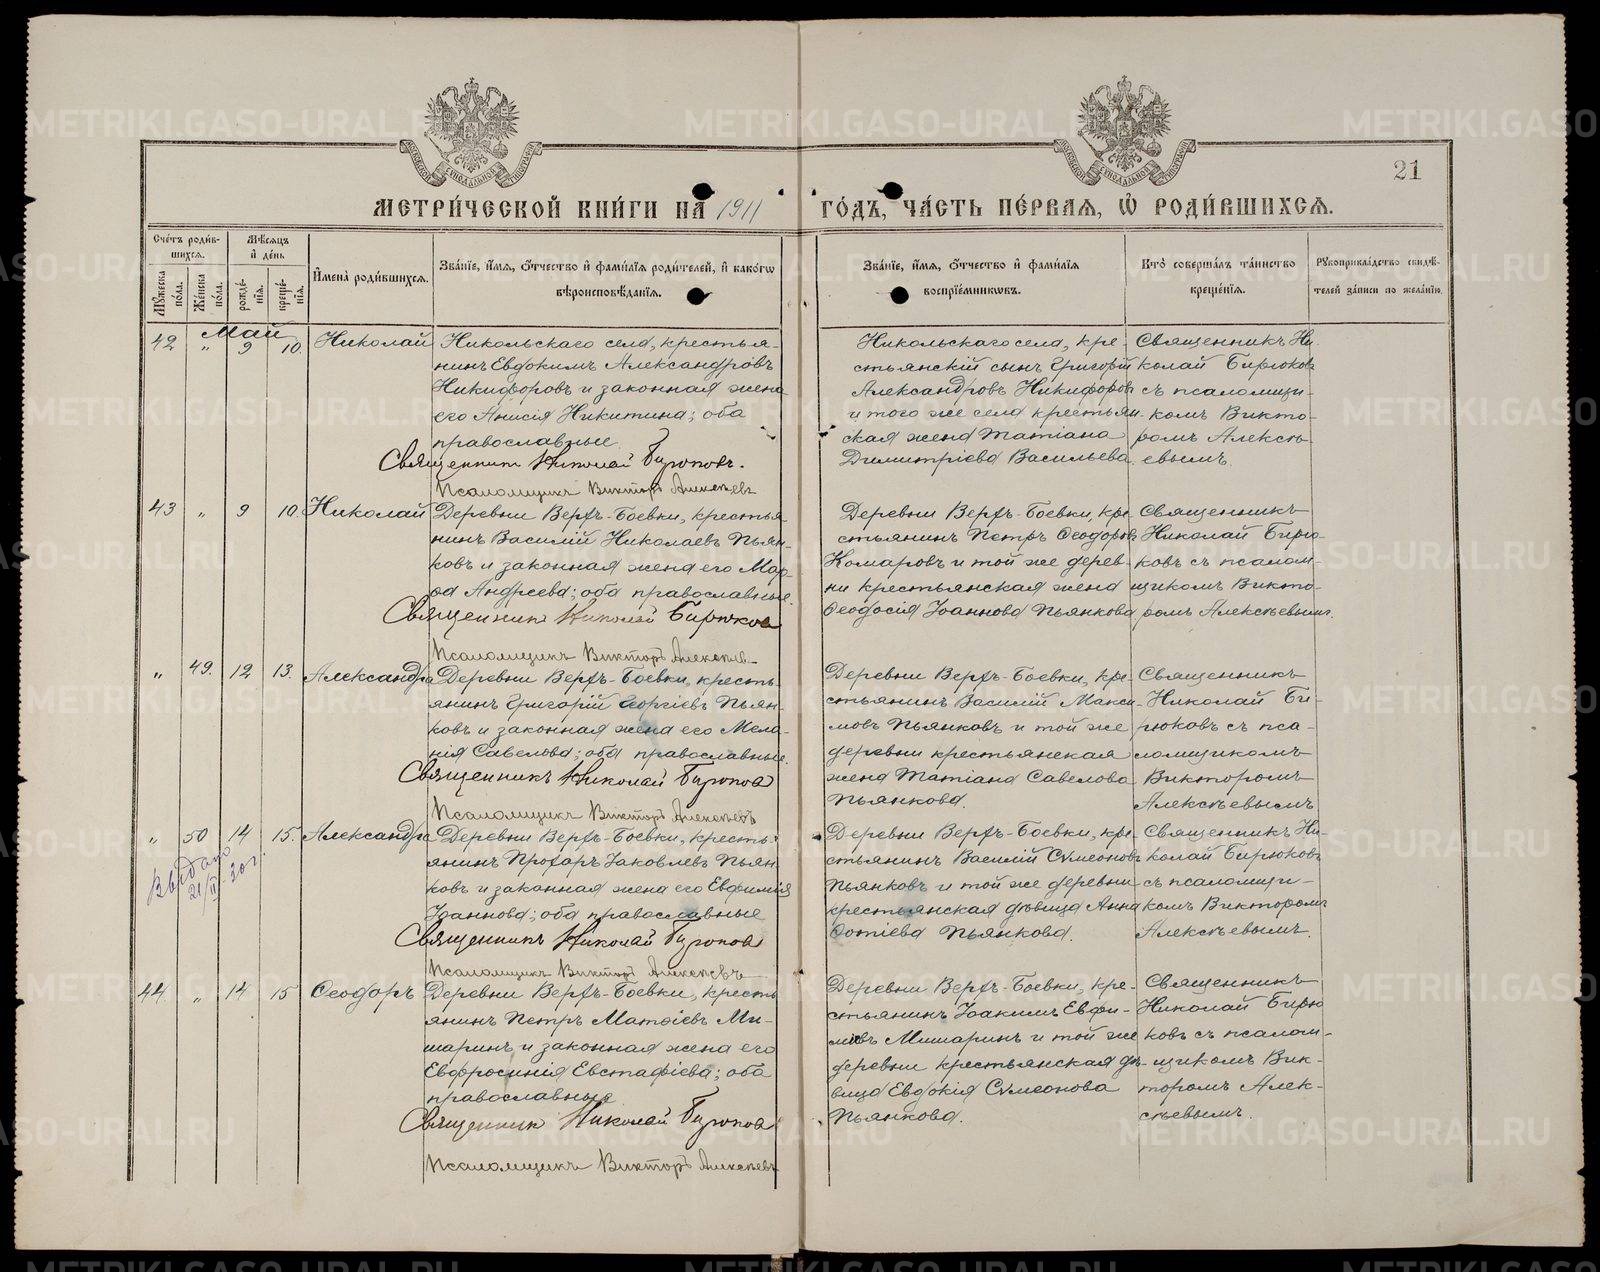 21
МЕТРИ́ЧЕСКОЙ КНИ́ГИ НА 1911 ГО́ДЪ, ЧА́СТЬ ПЕ́РВАЯ, Ѡ РОДИ́ВШИХСЯ.
Сче́тъ роди́вшихся.
Му́жеска по́ла.
Же́нска по́ла.
Мѣ́сяцъ и́ де́нь
рожде́нїя.
креще́нїя.
И҆мена̀ роди́вшихся.
Зва́нїе, и҆́мя, ѻ҆́тчество и҆ фами́лїя роди́телей, и҆ како́гѡ
вѣроисповѣ́данїя.
Зва́нїе, и҆́мя, ѻ҆́тчество и҆ фами́лїя
воспрїе́мникѡвъ.
Кто̀ соверша́лъ та́инство
креще́нїя.
Рукоприкла́дство свидѣ́-
телей за́писи по жела́нїю.
Май
42 " 9 10. Николай
Никольскаго села, крестья-
нинъ Евдокимъ Александровъ
Никифоровъ и законная жена
его Анисія Никитина; оба
православные
Священникъ Николай Бирюковъ.
Псаломщикъ Викторъ Алексѣевъ
Никольскаго села, кре-
стьянскій сынъ Григорій
Александровъ Никифоровъ
и того же села крестьян-
ская жена Татіана
Димитріева Васильева.
Священникъ Ни-
колай Бирюковъ
съ псаломщи-
комъ Викто-
ромъ Алексѣ-
евымъ.
43 " 9 10. Николай
Деревни Верхъ-Боевки, крестья-
нинъ Василій Николаевъ Пьян-
ковъ и законная жена его Мар-
ѳа Андреева; оба православные.
Священникъ Николай Бирюковъ
Псаломщикъ Викторъ Алексѣевъ
Деревни Верхъ-Боевки, кре-
стьянинъ Петръ Ѳеодоровъ
Комаровъ и той же дерев-
ни крестьянская жена
Ѳеодосія Іоаннова Пьянкова
Священникъ
Николай Бирю-
ковъ съ псалом-
щикомъ Викто-
ромъ Алексѣевымъ.
" 49. 12 13. Александра
Деревни Верхъ-Боевки, кресть-
янинъ Григорій Георгіевъ Пьян-
ковъ и законная жена его Мела-
нія Савелова; оба православные.
Священникъ Николай Бирюковъ
Псаломщикъ Викторъ Алексѣевъ
Деревни Верхъ-Боевки, кре-
стьянинъ Василій Макси-
мовъ Пьянковъ и той же
деревни крестьянская
жена Татіана Савелова
Пьянкова.
Священникъ
Николай Би-
рюковъ съ пса-
ломщикомъ
Викторомъ
Алексѣевымъ
" 50 14 15. Александра
Выдано
21/II 30 г.
Деревни Верхъ-Боевки, кресть-
янинъ Прохоръ Іаковлевъ Пьян-
ковъ и законная жена его Евфимія
Іоаннова; оба православные
Священникъ Николай Бирюковъ
Псаломщикъ Викторъ Алексѣевъ
Деревни Верхъ-Боевки, кре-
стьянинъ Василій Сѵмеоновъ
Пьянковъ и той же деревни
крестьянская дѣвица Анна
Фотіева Пьянкова.
Священникъ Ни-
колай Бирюковъ
съ псаломщи-
комъ Викторомъ
Алексѣевымъ.
44 " 14 15 Ѳеодоръ
Деревни Верхъ-Боевки, кресть-
янинъ Петръ Матѳіевъ Ми-
шаринъ и законная жена его
Евфросинія Евстафіева; оба
православные
Священникъ Николай Бирюковъ
Псаломщикъ Викторъ Алексѣевъ
Деревни Верхъ-Боевки, кре-
стьянинъ Іоакимъ Евфи-
міевъ Мишаринъ и той же
деревни крестьянская дѣ-
вица Евдокія Сѵмеонова
Пьянкова.
Священникъ
Николай Бирю-
ковъ съ псалом-
щикомъ Вик-
торомъ Алек-
сѣевымъ.
METRIKI.GASO-URAL.RU